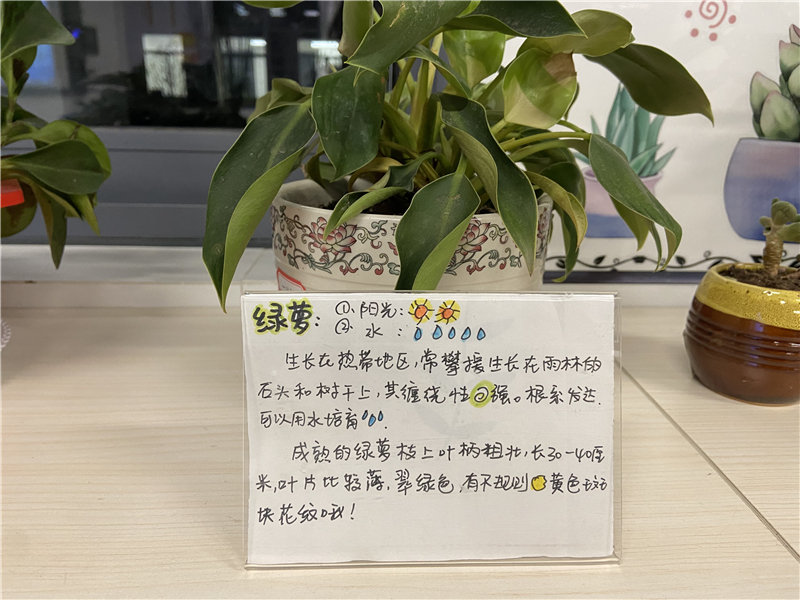 绿萝: ①、阳光:
②、水:
生长在热带地区,常攀援生长在雨林的
石头和树干上,其缠绕性强。根系发达.
可以用水培育.
成熟的绿萝枝上叶柄粗壮,长30-40厘
米,叶片比较薄,翠绿色,有不规则黄色斑
块花纹哦!